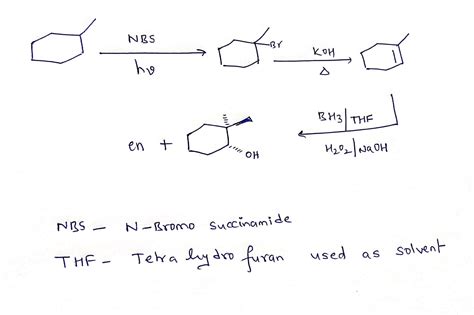 NBS
hν
Br
KOH
Δ
BH3 | THF
H2O2 | NaOH
en +
OH
NBS - N-Bromo succinamide
THF - Tetra hydro furan used as solvent